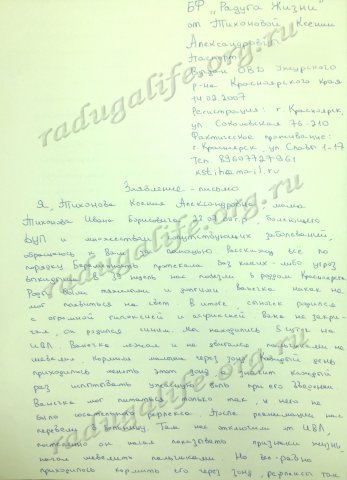 БФ "Радуга Жизни"
от Тихоновой Ксении
Александровны
Паспорт
Выдан ОВД Ужурского
р-на Красноярского края
14.02.2007
Регистрация: г. Красноярск,
ул. Сокольская 76-210
Фактическое проживание:
г. Красноярск, ул. Славы 1-17
Тел. 89607727961
Заявление - письмо
Я, Тихонова Ксения Александровна, мама
Тихонова Ивана Борисовича, болеющего
ДЦП и множеством сопутствующих заболеваний,
обращаюсь к Вам за помощью. Расскажу все по
порядку. Беременность протекала без каких либо угроз
выкидыша. За неделю нас повезли в роддом Красноярска.
Роды были тяжелыми и долгими, Ванечка никак не
мог появиться на свет. В итоге сыночек родился
с огромной гипоксией и асфиксией. Ваня не закри-
чал, он родился синим. Мы находились 5 суток на
ИВЛ. Ванечка лежал и не двигался, пальчиками не
шевелил. Кормили малыша через зонд. Каждый день
приходилось менять этот зонд, а значит каждый
раз испытывать ужасную боль при его введении.
Ванечка мог питаться только так, у него не
было сосательного рефлекса. После реанимации нас
перевели в больницу. Там нас отключили от ИВЛ,
постепенно он начал показывать признаки жизни,
начал шевелить пальчиками. Но все-равно
приходилось кормить его через зонд, рефлексы так
radugalife.org.ru
radugalife.org.ru
radugalife.org.ru
radugalife.org.ru